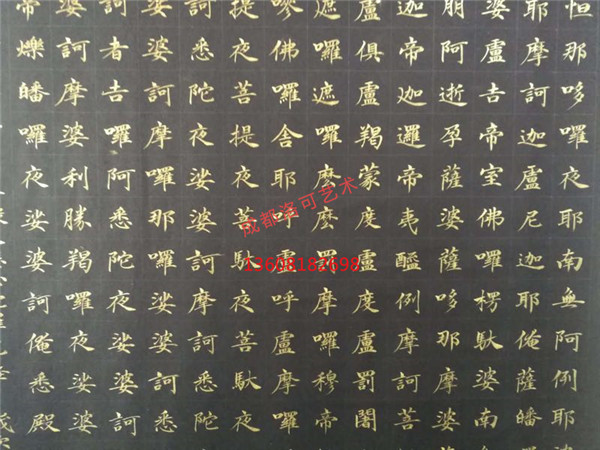 怛那哆囉夜耶南無阿例耶
耶摩訶迦盧尼迦耶俺薩皤
婆盧吉帝室佛囉楞馱婆南
朋阿逝孕薩婆薩哆那摩婆
迦帝迦邏帝夷醯例摩訶菩
盧俱盧羯蒙度盧度盧罰闍
遮囉遮囉麼麼罰摩囉穆帝
嘇佛囉舍耶呼盧呼盧摩囉
提夜菩提夜菩馱夜菩馱夜
訶悉陀夜娑婆訶摩訶悉陀
婆婆訶摩囉那囉娑婆訶悉
訶者吉囉阿悉陀夜娑婆訶
婆訶摩婆利勝羯囉夜娑婆
帝爍皤囉夜娑婆訶俺悉殿
成都洛可艺术
13608182698